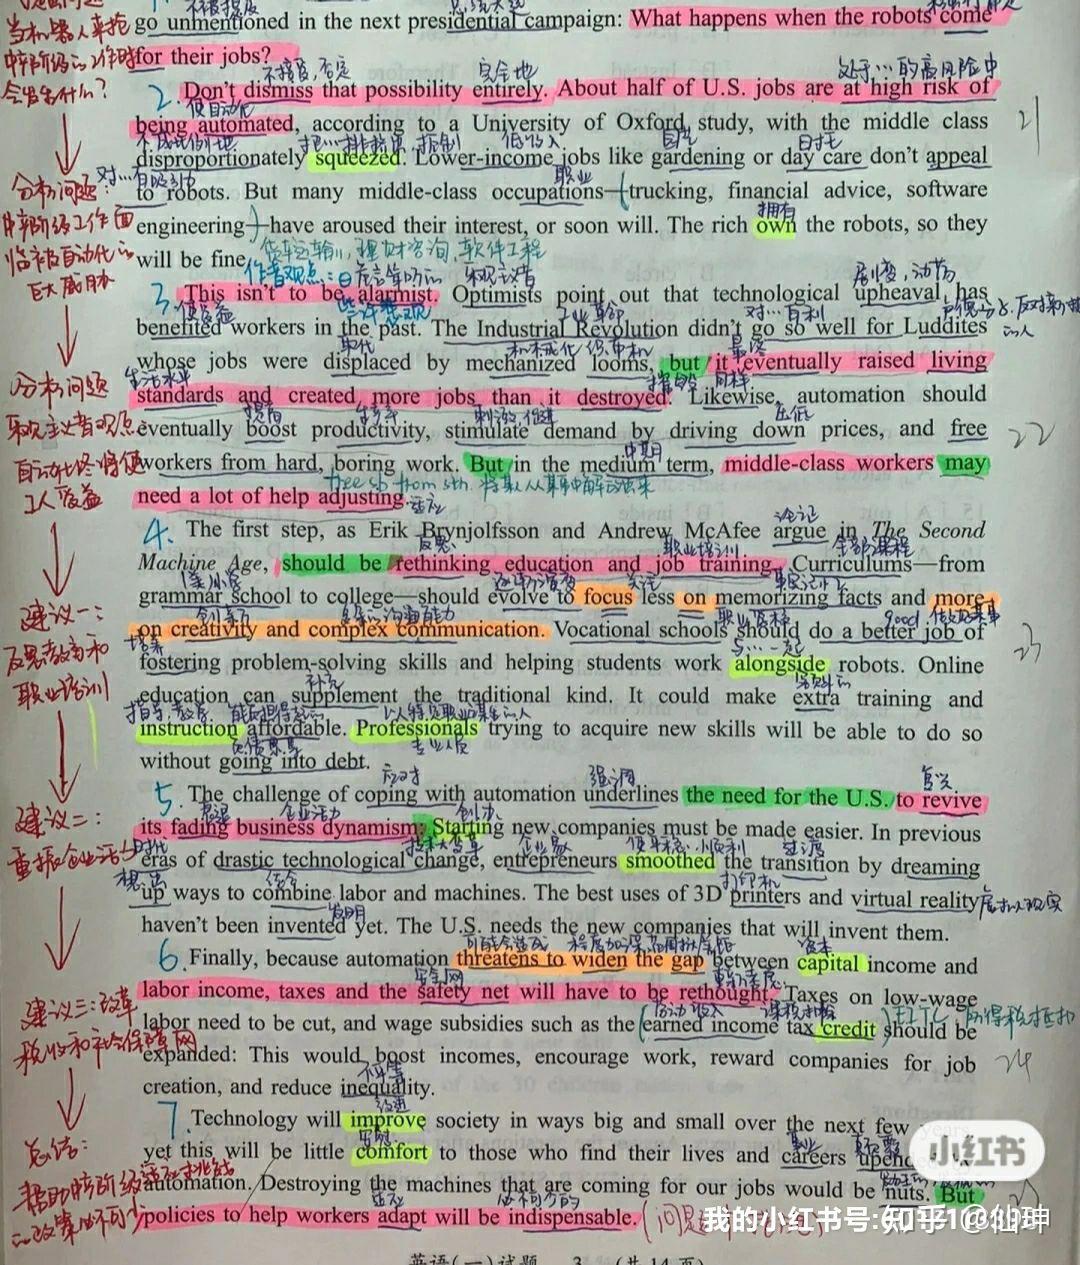 go unmentioned in the next presidential campaign: What happens when the robots come
for their jobs?
当机器人来抢
中产阶级的工作时
会发生什么?
不接受,否定 完全地 处于…的高风险中
2. Don't dismiss that possibility entirely. About half of U.S. jobs are at high risk of
使自动化
being automated, according to a University of Oxford study, with the middle class
21
disproportionately squeezed. Lower-income jobs like gardening or day care don't appeal
对…有吸引力 职业
to robots. But many middle-class occupations—trucking, financial advice, software
拥有
engineering—have aroused their interest, or soon will. The rich own the robots, so they
will be fine.
货车运输,理财咨询,软件工程
分析问题:
中产阶级工作面
临被自动化的
巨大威胁
作者观点: 危言耸听的 乐观主义者 剧变,动荡
3. This isn't to be alarmist. Optimists point out that technological upheaval has
使受益 工业革命 对…有利
benefited workers in the past. The Industrial Revolution didn't go so well for Luddites
取代 机械化 织布机 最终
whose jobs were displaced by mechanized looms, but it eventually raised living
生活水平 摧毁 同样
standards and created more jobs than it destroyed. Likewise, automation should
提高 生产率 刺激,促进 压低
eventually boost productivity, stimulate demand by driving down prices, and free
22
中期
workers from hard, boring work. But in the medium term, middle-class workers may
free sb from sth. 将某人从某事中解放出来
need a lot of help adjusting.
适应
分析问题
乐观主义者观点:
自动化终将使
工人受益
论证
4. The first step, as Erik Brynjolfsson and Andrew McAfee argue in The Second
反思 职业培训 全部课程
Machine Age, should be rethinking education and job training. Curriculums—from
逐渐演变 关注
grammar school to college—should evolve to focus less on memorizing facts and more
创造力 职业院校 good
on creativity and complex communication. Vocational schools should do a better job of
23
培养 与…一起
fostering problem-solving skills and helping students work alongside robots. Online
补充 额外的
education can supplement the traditional kind. It could make extra training and
instruction affordable. Professionals trying to acquire new skills will be able to do so
专业人员
without going into debt.
建议一:
反思教育和
职业培训
应对 强调 复兴
5. The challenge of coping with automation underlines the need for the U.S. to revive
企业活力 创办
its fading business dynamism: Starting new companies must be made easier. In previous
时代 技术大变革 企业家 过渡
eras of drastic technological change, entrepreneurs smoothed the transition by dreaming
想出 结合 打印机
up ways to combine labor and machines. The best uses of 3D printers and virtual reality
虚拟现实
发明
haven't been invented yet. The U.S. needs the new companies that will invent them.
建议二:
重振企业活力
资本
6. Finally, because automation threatens to widen the gap between capital income and
安全网
labor income, taxes and the safety net will have to be rethought. Taxes on low-wage
劳动收入
labor need to be cut, and wage subsidies such as the (earned income tax credit) should be
EITC 所得税抵扣
expanded: This would boost incomes, encourage work, reward companies for job
24
不平等
creation, and reduce inequality.
建议三:改革
税收和社会保障网
改进
7. Technology will improve society in ways big and small over the next few years,
安慰 职业
yet this will be little comfort to those who find their lives and careers
automation. Destroying the machines that are coming for our jobs would be nuts. But
适应 必不可少的
policies to help workers adapt will be indispensable.
总结:
帮助中产阶级适应
的政策必不可少
小红书
我的小红书号:
知乎 @仙珅
英语(一)试题 3 (共14页)